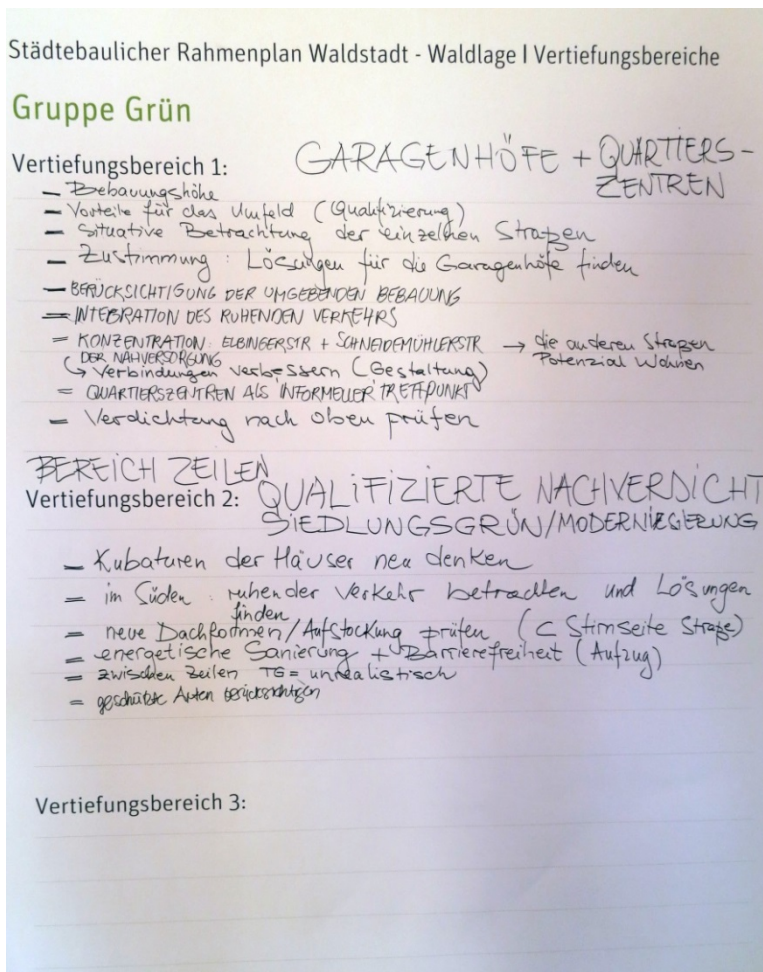 Städtebaulicher Rahmenplan Waldstadt - Waldlage I Vertiefungsbereiche
Gruppe Grün
Vertiefungsbereich 1: GARAGENHÖFE + QUARTIERS-
ZENTREN
– Bebauungshöhe
– Vorteile für das Umfeld (Qualifizierung)
– Situative Betrachtung der einzelnen Straßen
– Zustimmung: Lösungen für die Garagenhöfe finden
– BERÜCKSICHTIGUNG DER UMGEBENDEN BEBAUUNG
– INTEGRATION DES RUHENDEN VERKEHRS
= KONZENTRATION: ELBINGERSTR + SCHNEIDEMÜHLERSTR → die anderen Straßen
DER NAHVERSORGUNG Potenzial Wohnen
↳ Verbindungen verbessern (Gestaltung)
= QUARTIERSZENTREN ALS INFORMELLER TREFFPUNKT
– Verdichtung nach oben prüfen
BEREICH ZEILEN
Vertiefungsbereich 2: QUALIFIZIERTE NACHVERDICHT
SIEDLUNGSGRÜN/MODERNISIERUNG
– Kubaturen der Häuser neu denken
= im Süden: ruhender Verkehr betrachten und Lösungen
finden
= neue Dachformen/Aufstockung prüfen ( Stirnseite Straße)
= energetische Sanierung + Barrierefreiheit (Aufzug)
= zwischen Zeilen TG = unrealistisch
= geschützte Arten berücksichtigen
Vertiefungsbereich 3: